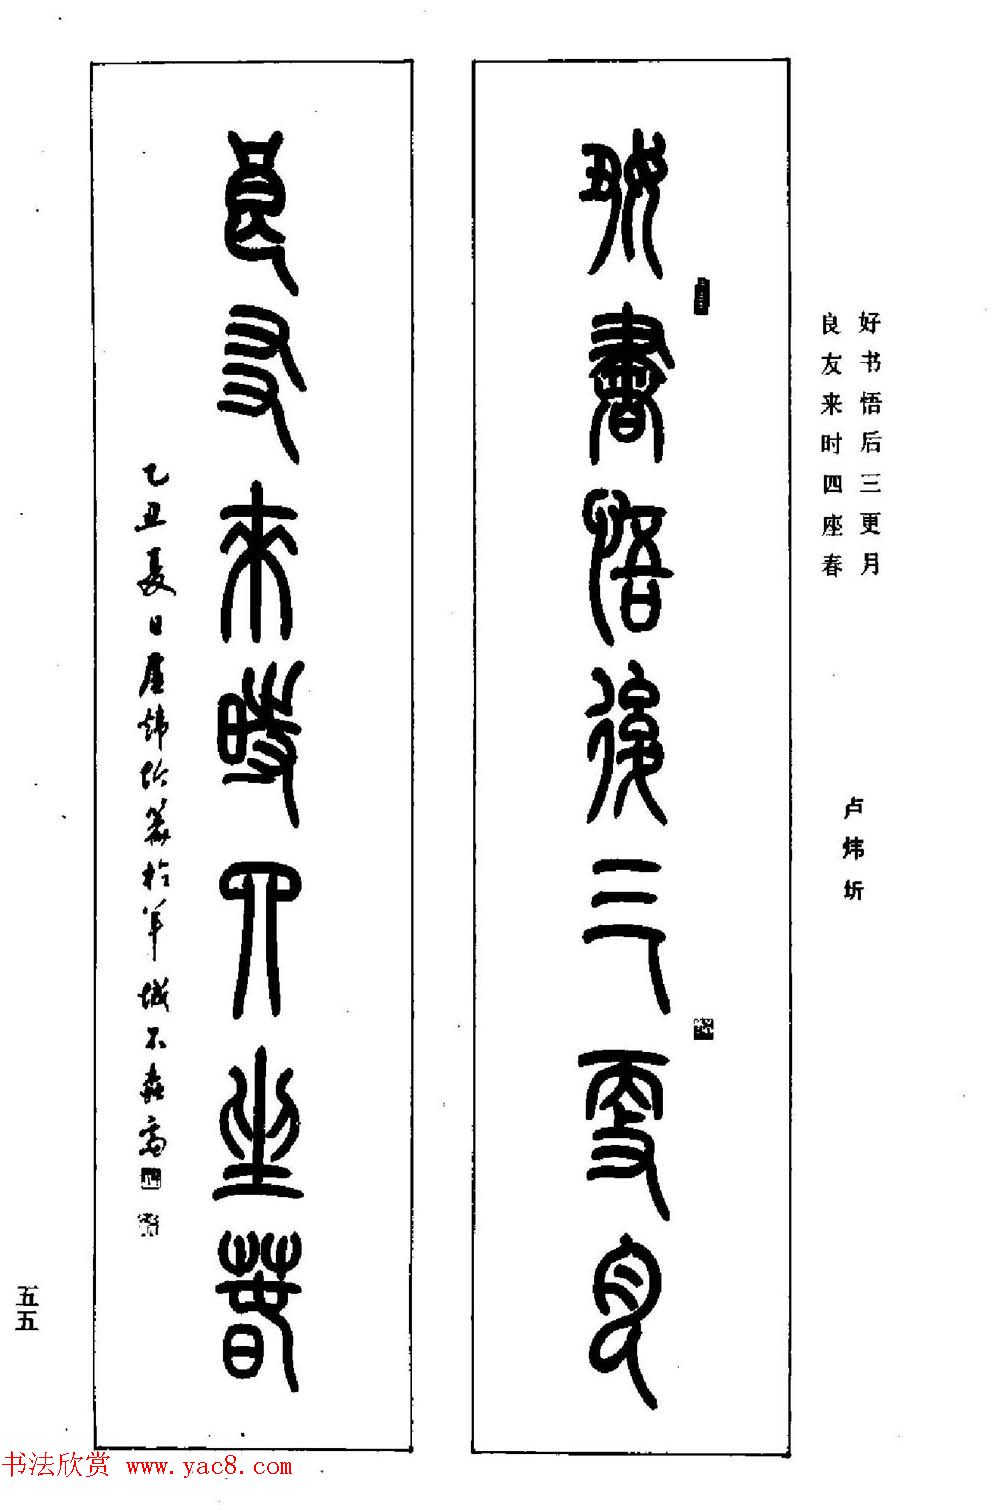 好书悟后三更月
良友来时四座春
卢炜圻
𡥆書悟後三更月
良友来時四坐萅
乙丑夏日盧煒圻篆於羊城不磊斋
五五
书法欣赏 www.yac8.com